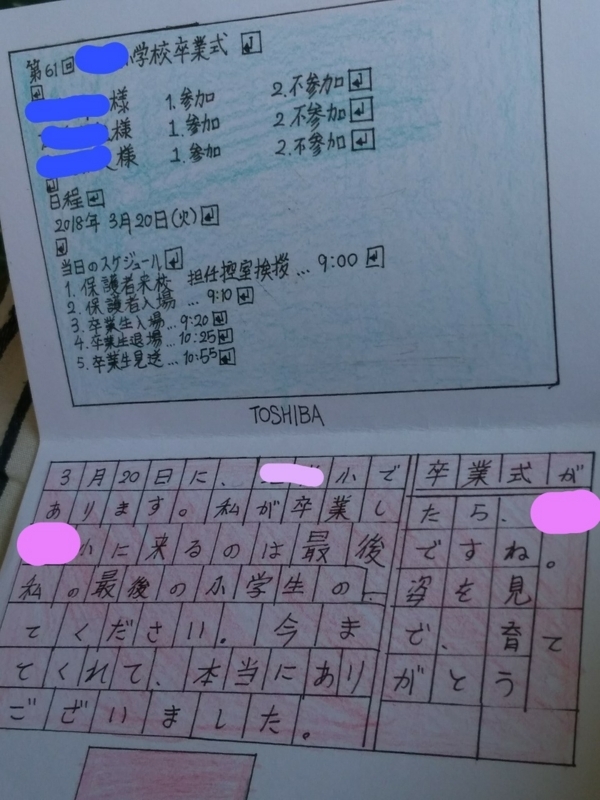 第61回 小学校卒業式 ↵
↵
様 1.参加 2.不参加 ↵
様 1.参加 2.不参加 ↵
様 1.参加 2.不参加 ↵
↵
日程 ↵
2018年 3月20日(火) ↵
↵
当日のスケジュール ↵
1.保護者来校 担任控室挨拶…9:00 ↵
2.保護者入場 …9:10 ↵
3.卒業生入場…9:20 ↵
4.卒業生退場…10:25 ↵
5.卒業生見送…10:55 ↵
TOSHIBA
3月20日に、 小で卒業式が
あります。私が卒業したら、
小に来るのは最後ですね。
私の最後の小学生の姿を見
てください。今まで、育て
てくれて、本当にありがとう
ございました。